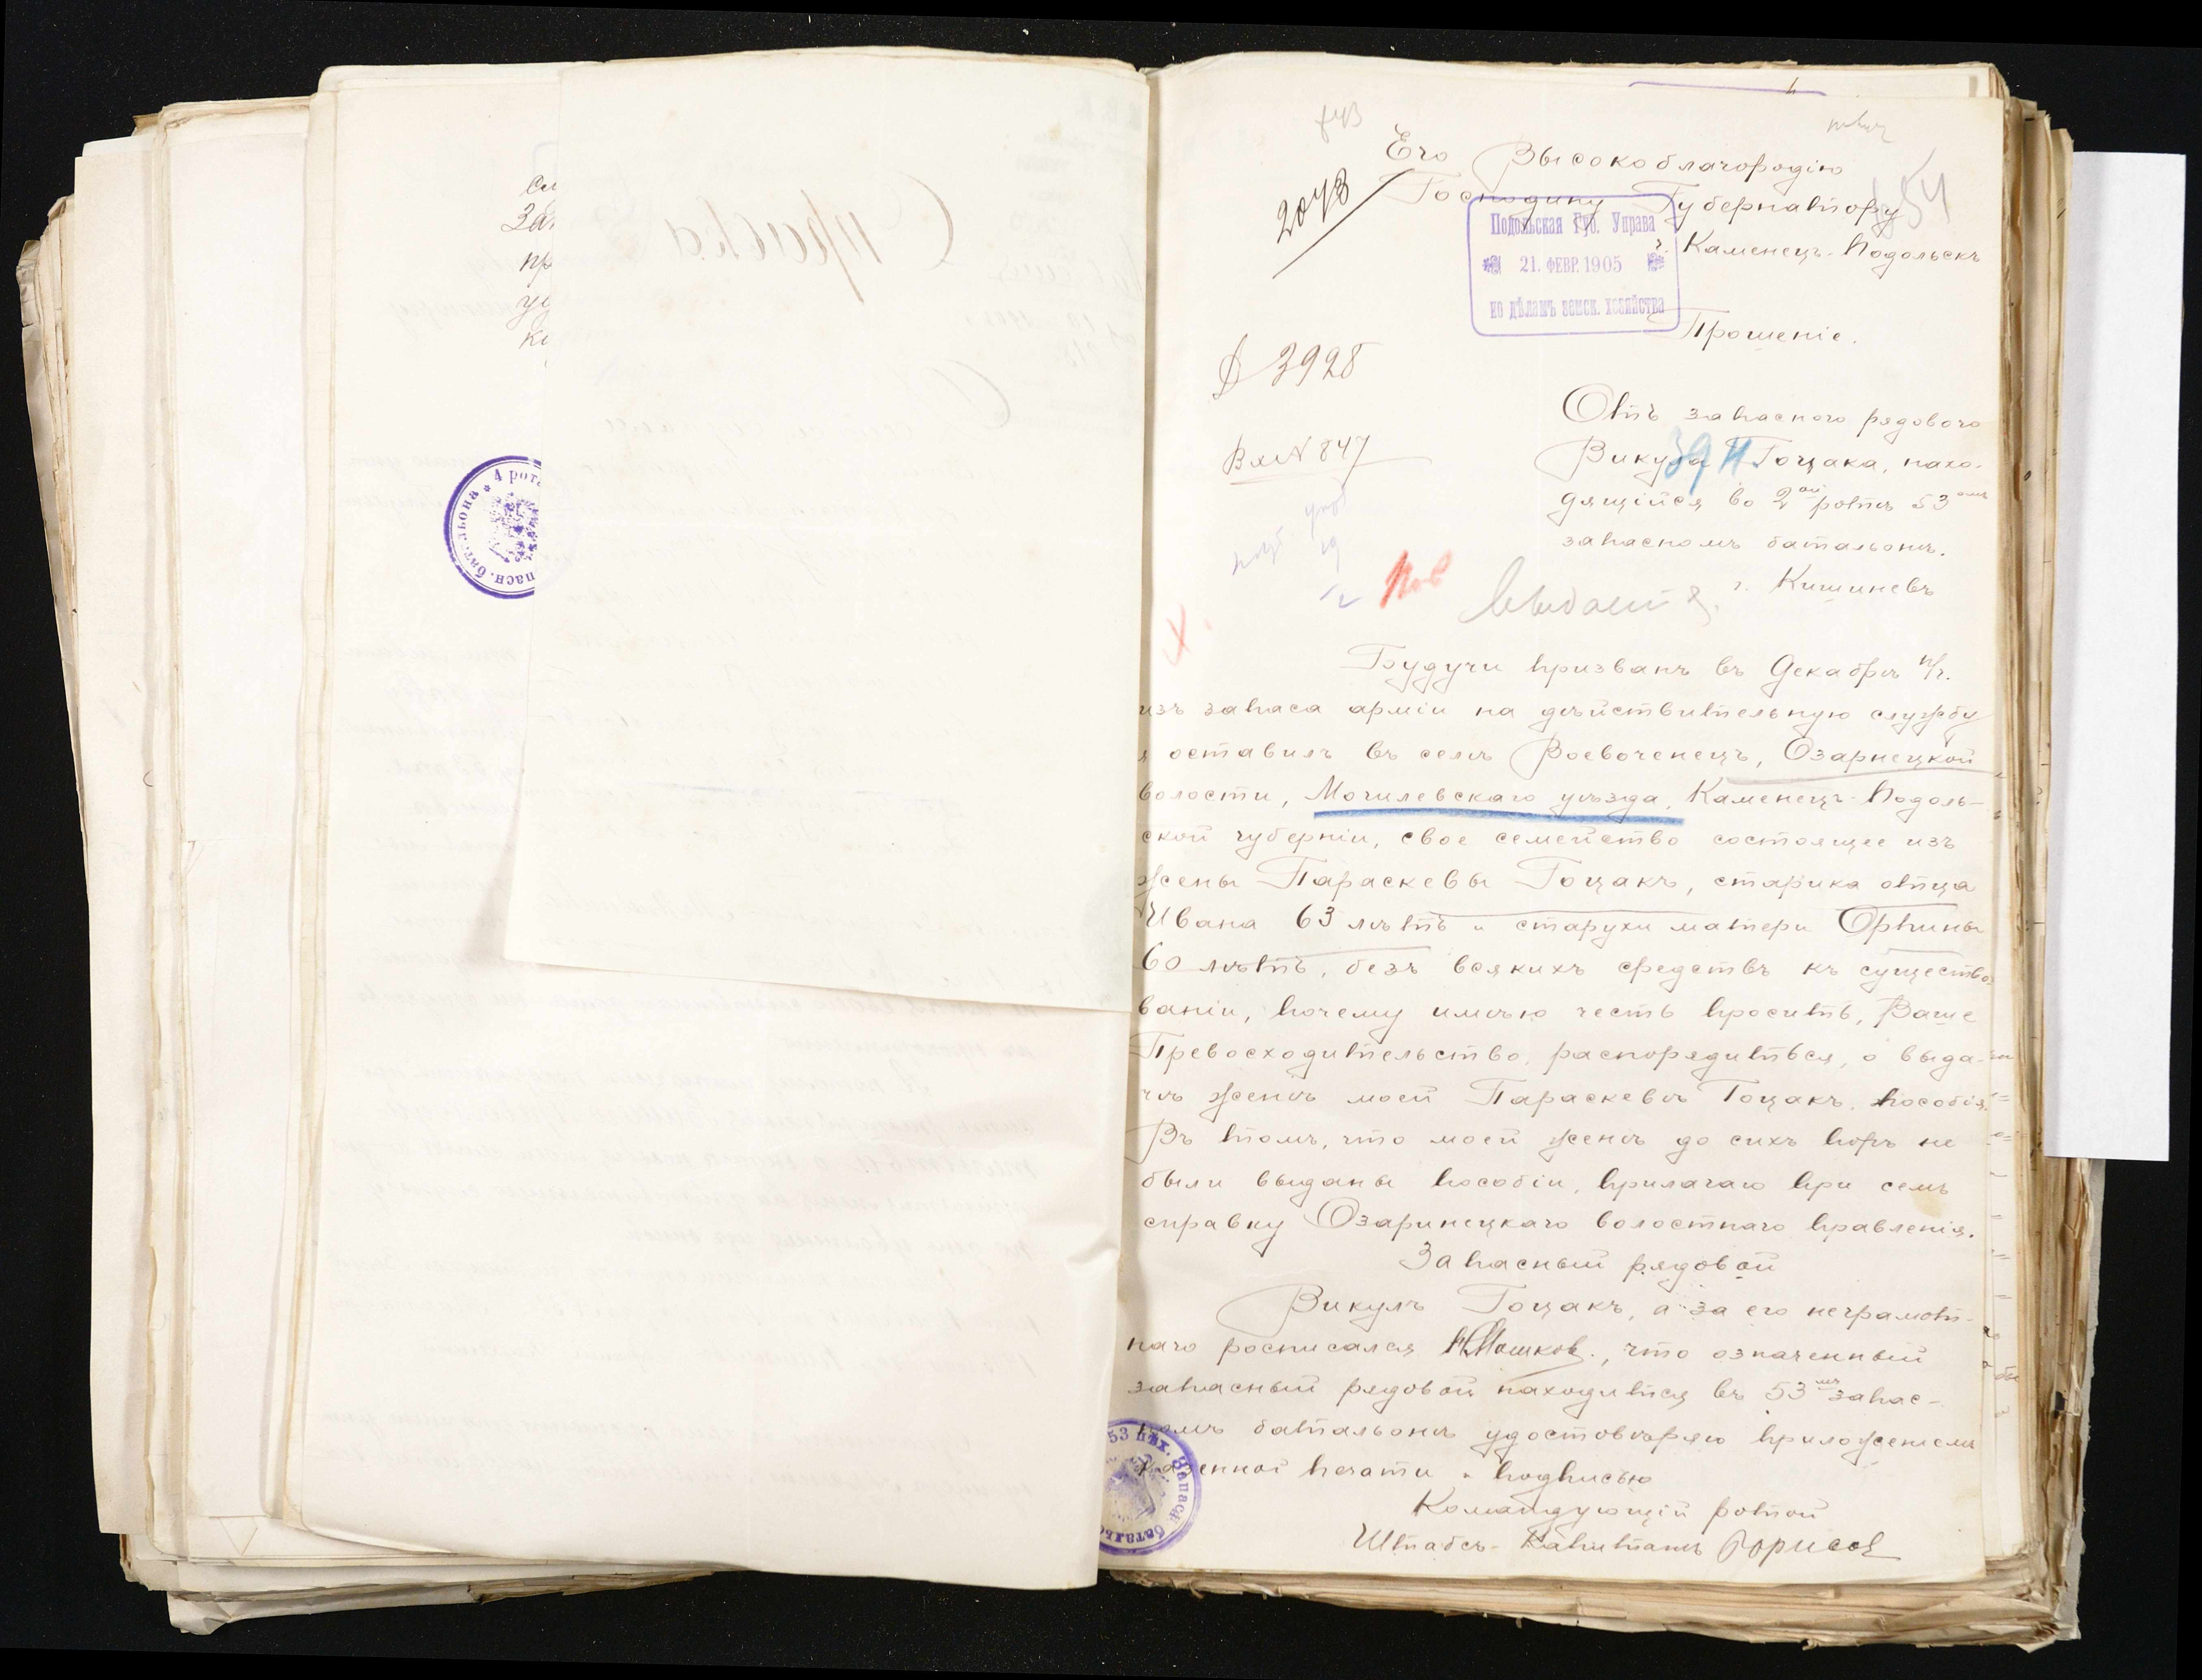 си
Зап
пр
ус
ки
4 рот
пасн. баталіона
Его Высокоблагородію
Господину Губернатору
г. Каменецъ-Подольскъ
2073
54
Подольская Губ. Управа
21. ФЕВР. 1905
по дѣламъ земск. хозяйства
Прошеніе.
3928
Отъ запасного рядового
Викула Гоцака, нахо-
39
дящійся во 2ой ротѣ 53омъ
запасномъ баталіонѣ.
г. Кишиневъ
Вх № 847
Будучи призванъ въ Декабрѣ п/г.
изъ запаса арміи на дѣйствительную службу
я оставилъ въ селѣ Воевоченецъ, Озарнецкой
волости, Могилевскаго уѣзда, Каменецъ-Подоль-
ской губерніи, свое семейство состоящее изъ
жены Параскевы Гоцакъ, старика отца
Ивана 63 лѣтъ и старухи матери Орпины
60 лѣтъ, безъ всякихъ средствъ къ существо-
ваніи, почему имѣю честь просить, Ваше
Превосходительство, распорядиться, о выда-
чѣ женѣ моей Параскевѣ Гоцакъ, пособія.
Въ томъ, что моей женѣ до сихъ поръ не
были выданы пособіи, прилагаю при семъ
справку Озаринецкаго волостнаго правленія.
Запасный рядовой
Викулъ Гоцакъ, а за его неграмот-
наго росписался Мошков., что означенный
запасный рядовой находится въ 53мъ запас-
номъ баталіонѣ удостовѣряю приложеніемъ
казенной печати и подписью
53 пѣх. Запасн. баталіо
Командующій ротой
Штабсъ-Капитанъ Борисов